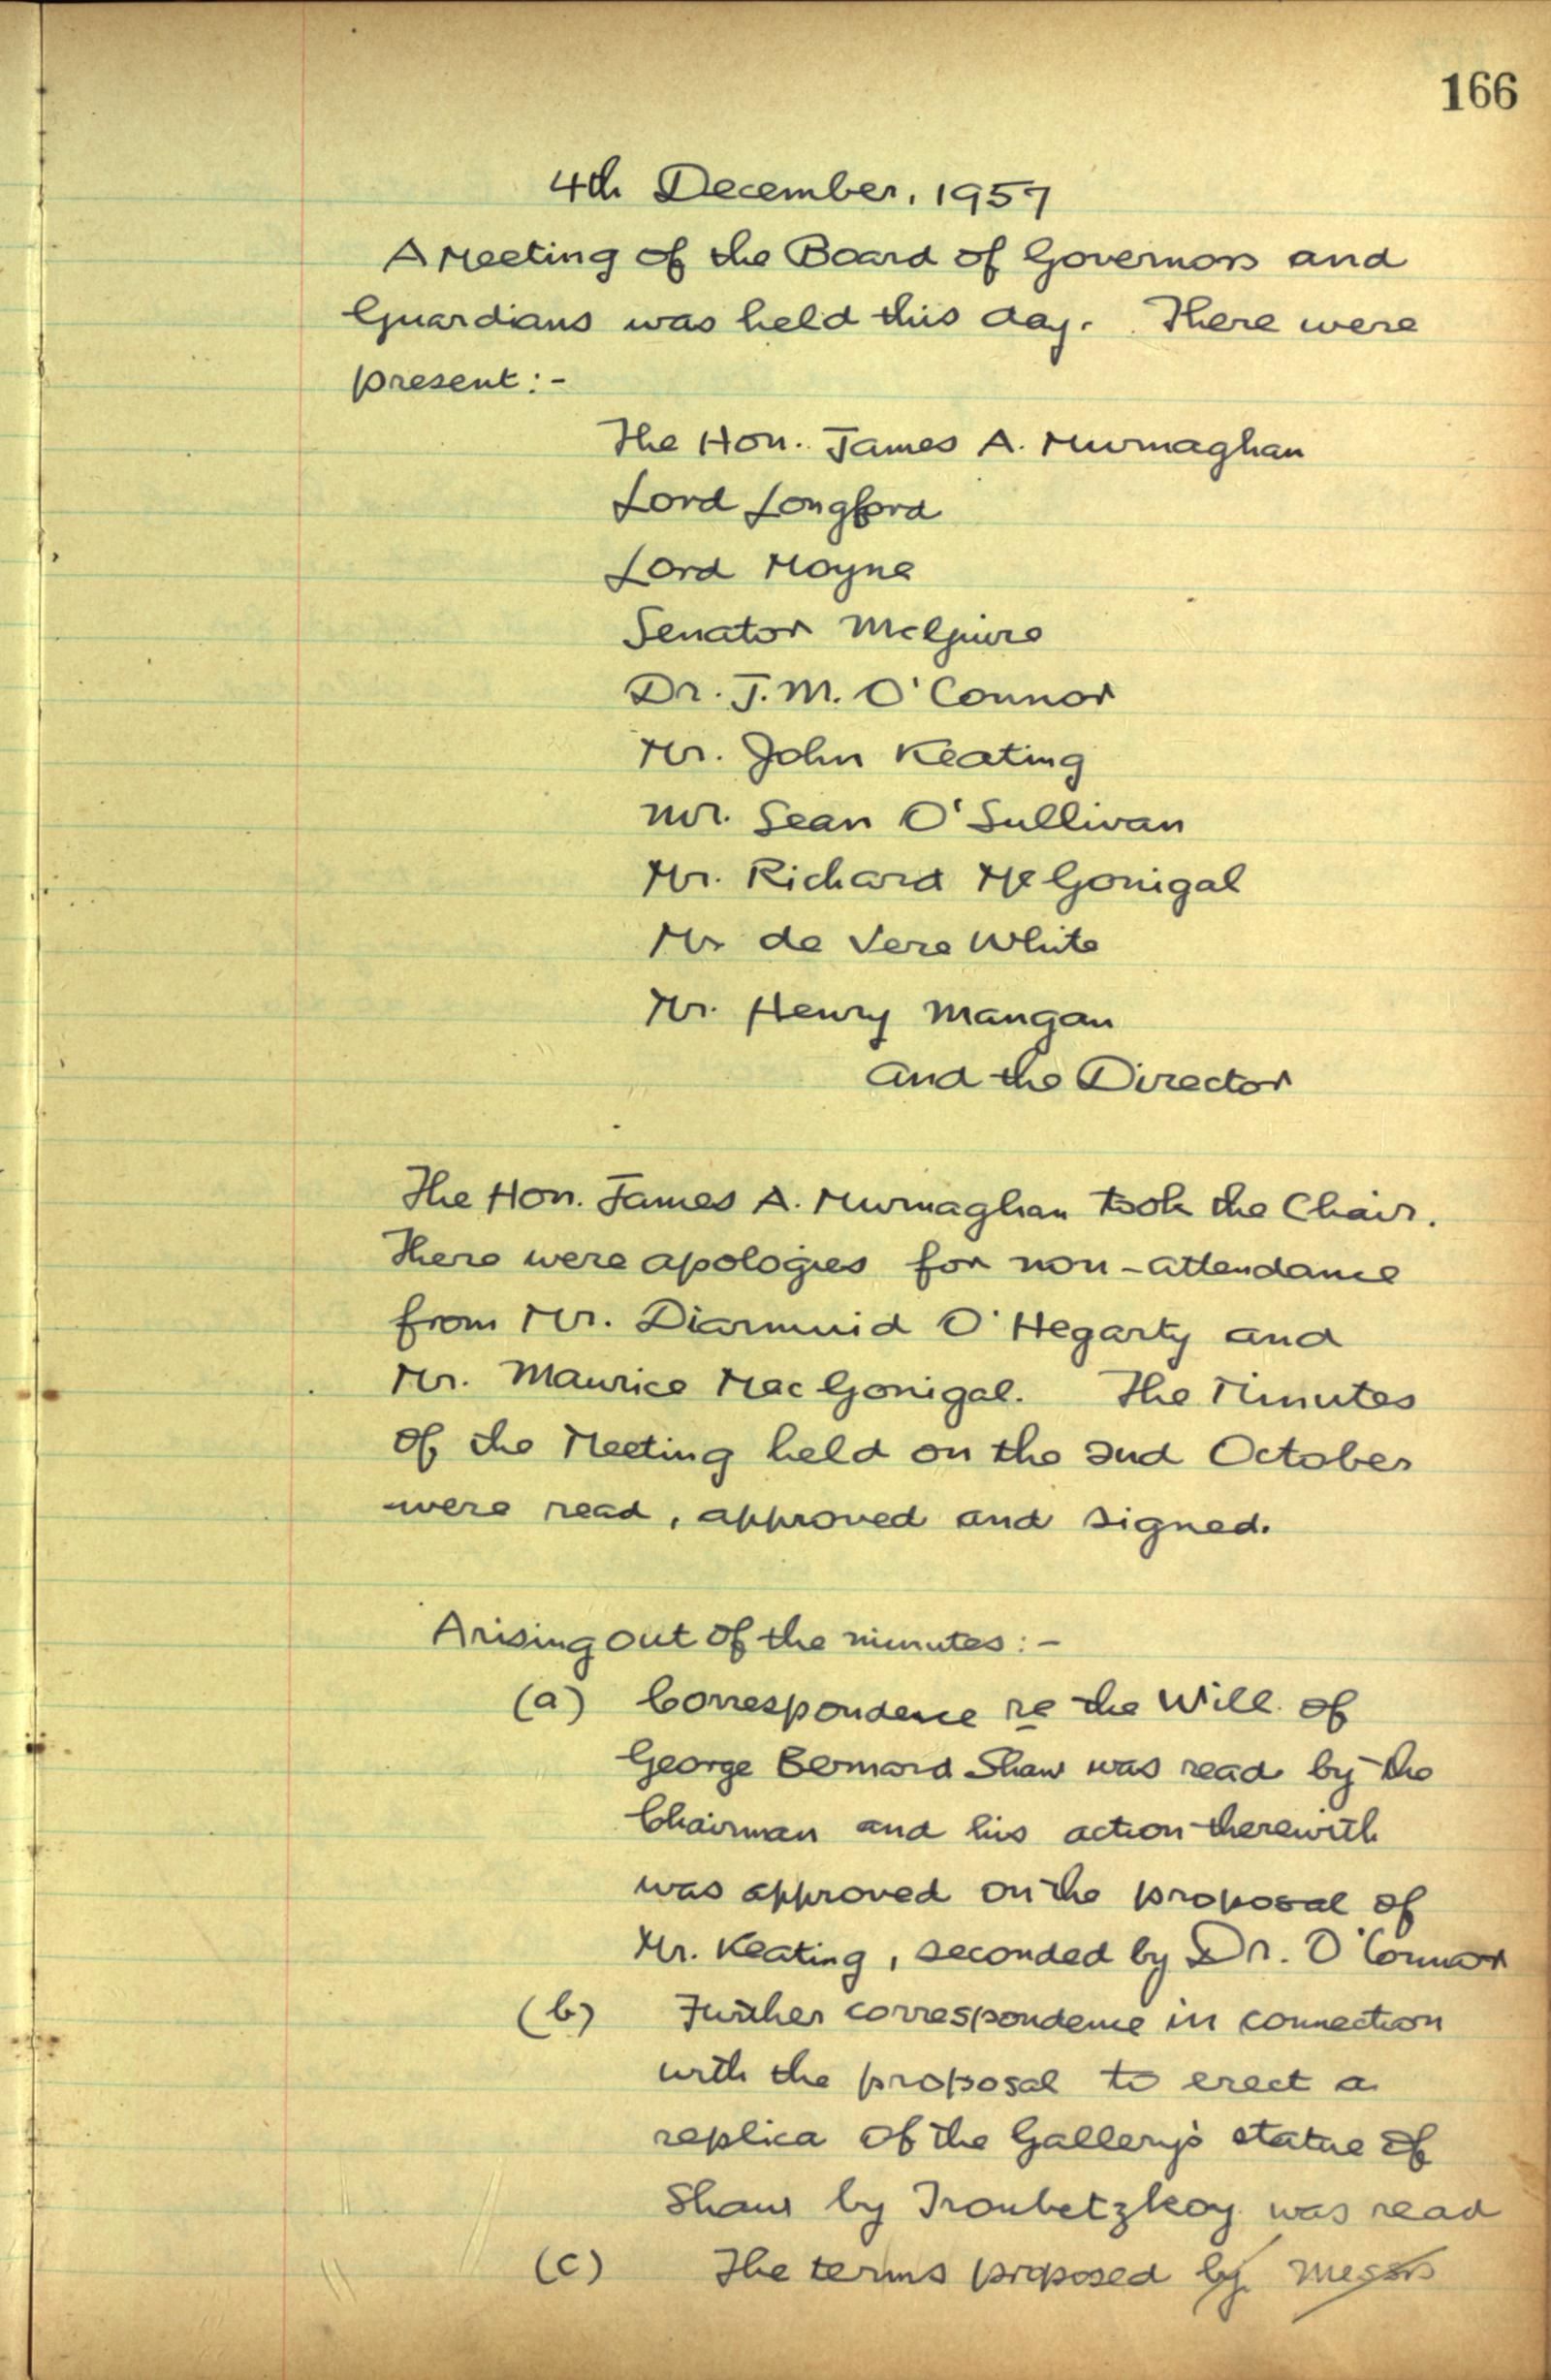 166
4th December, 1957
A Meeting of the Board of Governors and
Guardians was held this day. There were
present:-
The Hon. James A. Murnaghan
Lord Longford
Lord Moyne
Senator McGuire
Dr. J.M. O'Connor
Mr. John Keating
Mr. Sean O'Sullivan
Mr. Richard McGonigal
Mr de Vere White
Mr. Henry Mangan
and the Director
The Hon. James A. Murnaghan took the Chair.
There were apologies for non-attendance
from Mr. Diarmuid O'Hegarty and
Mr. Maurice MacGonigal. The Minutes
of the Meeting held on the 2nd October
were read, approved and signed.
Arising out of the minutes:-
(a) Correspondence re the Will of
George Bernard Shaw was read by the
Chairman and his action therewith
was approved on the proposal of
Mr. Keating, seconded by Dr. O'Connor
(b) Further correspondence in connection
with the proposal to erect a
replica of the Gallery's statue of
Shaw by Troubetzkoy was read
(c) The terms proposed by Messrs